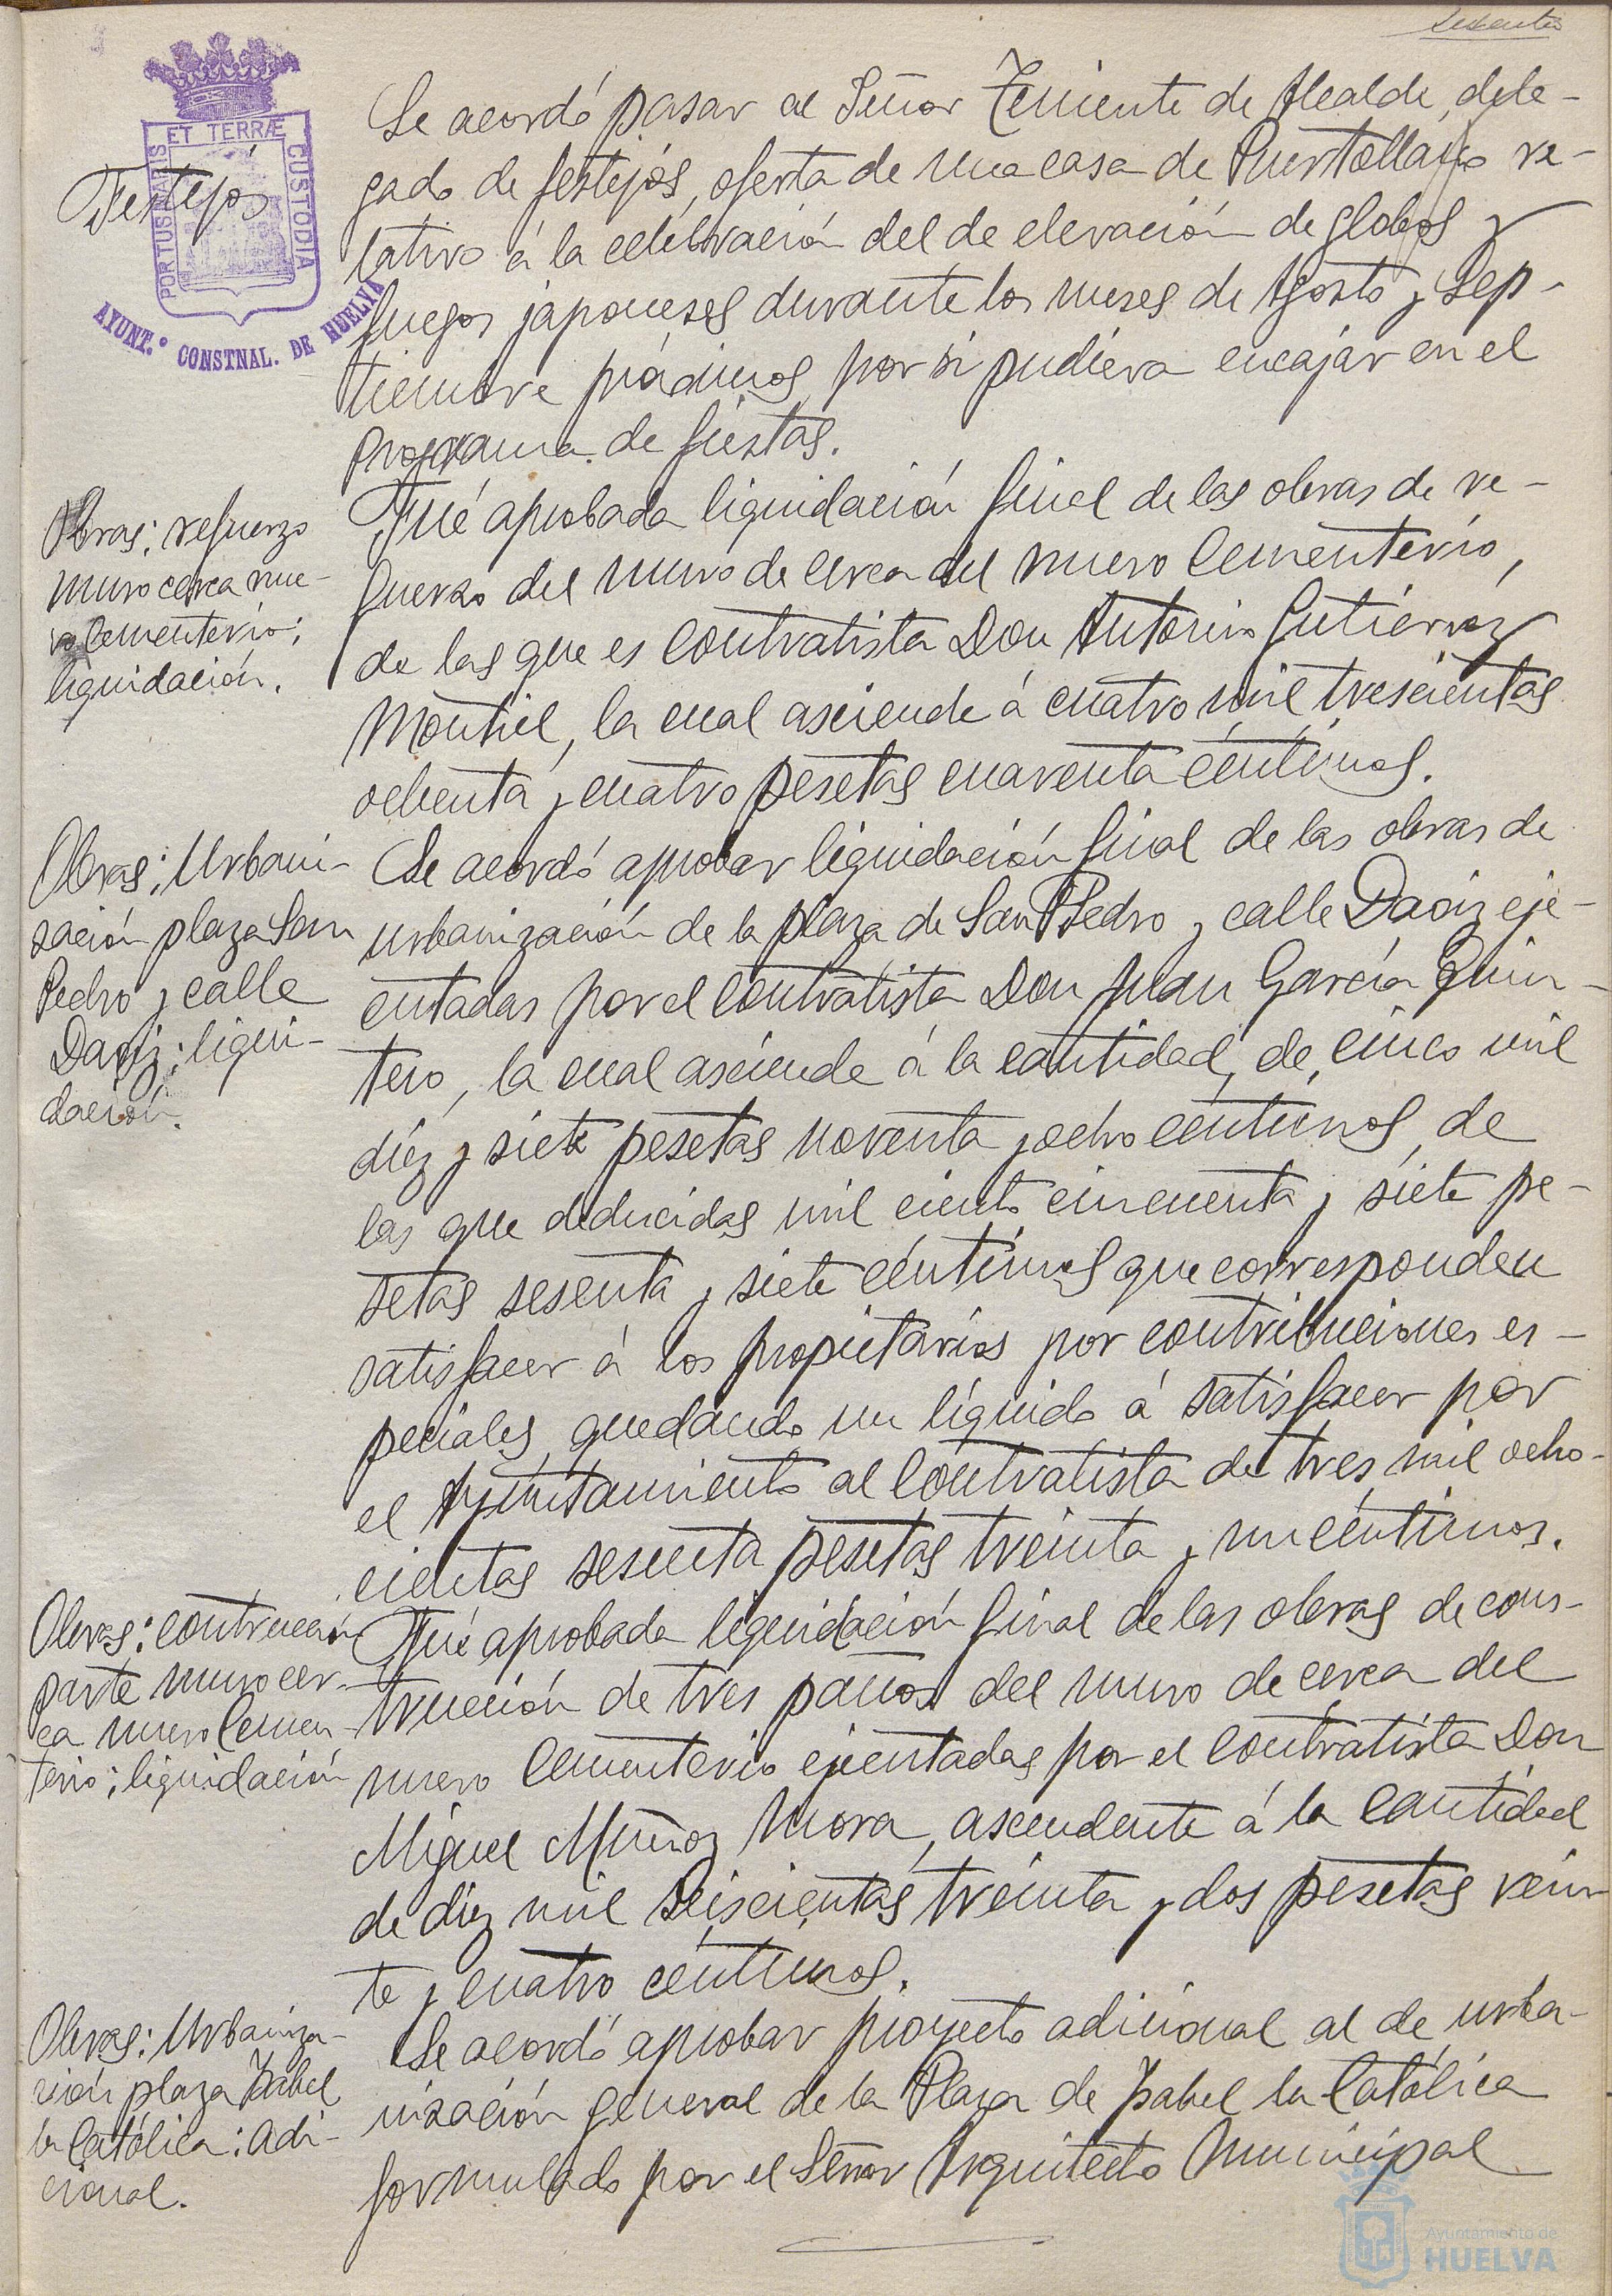 sesenta
PORTUS MARIS ET TERRÆ CUSTODIA
AYUNT.º CONSTNAL. DE HUELVA
Festejos
Se acordó pasar al Señor Teniente de Alcalde, dele-
gado de festejos, oferta de una casa de Puertollano re-
lativo á la celebración del de elevación de globos y
fuegos japoneses durante los meses de Agosto y Sep-
tiembre próximos, por si pudiera encajar en el
programa de fiestas.
Obras; refuerzo
muro cerca nue-
vo Cementerio;
liquidación.
Fué aprobada liquidación final de las obras de re-
fuerzo del muro de cerca del nuevo Cementerio,
de las que es contratista Don Antonio Gutiérrez
Montiel, la cual asciende á cuatro mil trescientas
ochenta y cuatro pesetas cuarenta céntimos.
Obras; Urbani-
zación plaza San
Pedro y calle
Daoiz; liqui-
dación.
Se acordó aprobar liquidación final de las obras de
urbanización de la plaza de San Pedro y calle Daoiz eje-
cutadas por el contratista Don Juan García Quin-
tero, la cual asciende á la cantidad, de, cinco mil
diez y siete pesetas noventa y ocho céntimos, de
las que deducidas mil ciento cincuenta y siete pe-
setas sesenta y siete céntimos que corresponden
satisfacer á los propietarios por contribuciones es-
peciales, quedando un líquido á satisfacer por
el Ayuntamiento al contratista de tres mil ocho-
cientas sesenta pesetas treinta y un céntimos.
Obras: contrucción
parte muro cer-
ca nuevo Cemen-
terio; liquidación
Fué aprobada liquidación final de las obras de cons-
trucción de tres paños del muro de cerca del
nuevo Cementerio ejecutadas por el contratista Don
Miguel Muñoz Mora, ascendente á la cantidad
de diez mil seiscientas treinta y dos pesetas vein-
te y cuatro céntimos.
Obras: Urbaniza-
ción plaza Isabel
la Católica: Adi-
cional.
Se acordó aprobar proyecto adicional al de urba-
nización general de la Plaza de Isabel la Católica
formulado por el Señor Arquitecto Municipal
Ayuntamiento de
HUELVA